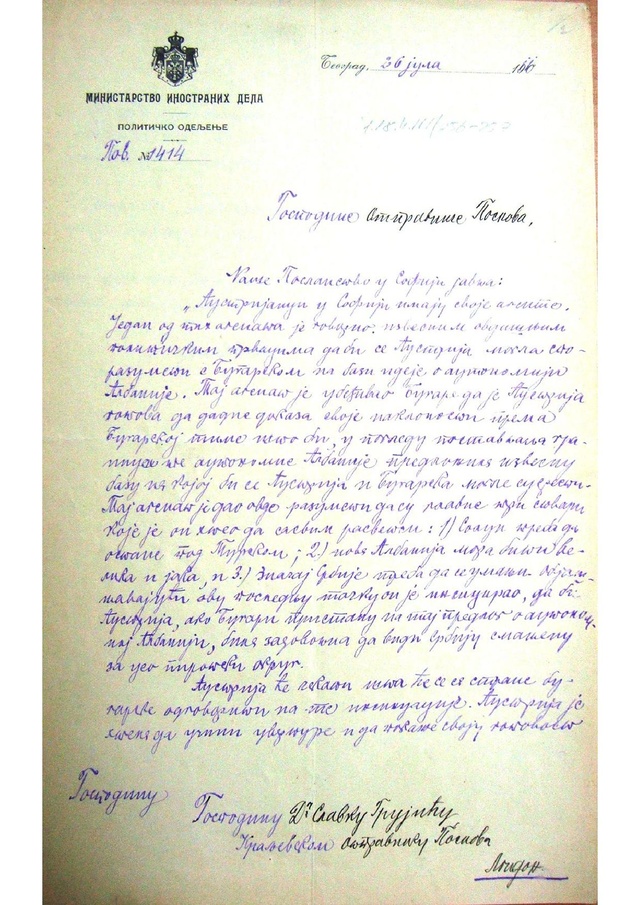 1/2
Београд, 26 јула 191
МИНИСТАРСТВО ИНОСТРАНИХ ДЕЛА
ПОЛИТИЧКО ОДЕЉЕЊЕ
Пов. №1414
Господине отправниче Послова,
Наше Посланство у Софији јавља:
„Аустријанци у Софији имају своје агенте.
Један од тих агената је говорио извесним овдашњим
политичким да би се Аустрија могла спо-
разумети с Бугарском на бази идеје о аутономији
Албаније. Тај агенат је убеђивао Бугаре да је Аустрија
готова да даде доказа своје наклоности према
Бугарској тиме што би, у погледу постављања гра-
нице те аутономне Албаније предложила извесну
базу на којој би се Аустрија и Бугарска могле срести.
Тај агенат је дао овде разумети да су главне три ствари
које је он хтео да сасвим расветли: 1) Солун треба да
остане под Турском; 2) нова Албанија мора бити ве-
лика и јака, и 3.) Значај Србије треба да се умањи. Објаш-
њавајући ову последњу тачку он је инсинуирао, да би
Аустрија, ако Бугари пристану на тај предлог о аутоном-
ној Албанији, била задовољна да види Србију смањену
за цео пиротски округ.
Аустрија ће чекати шта ће се са стране Бу-
гарске одговорити на те инсинуације. Аустрија је
хтела да учини увертире и да покаже своју готовост
Господину
Господину Др Славку Грујићу
Краљевском отправнику Послова
Лондон